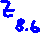 Z 8.6